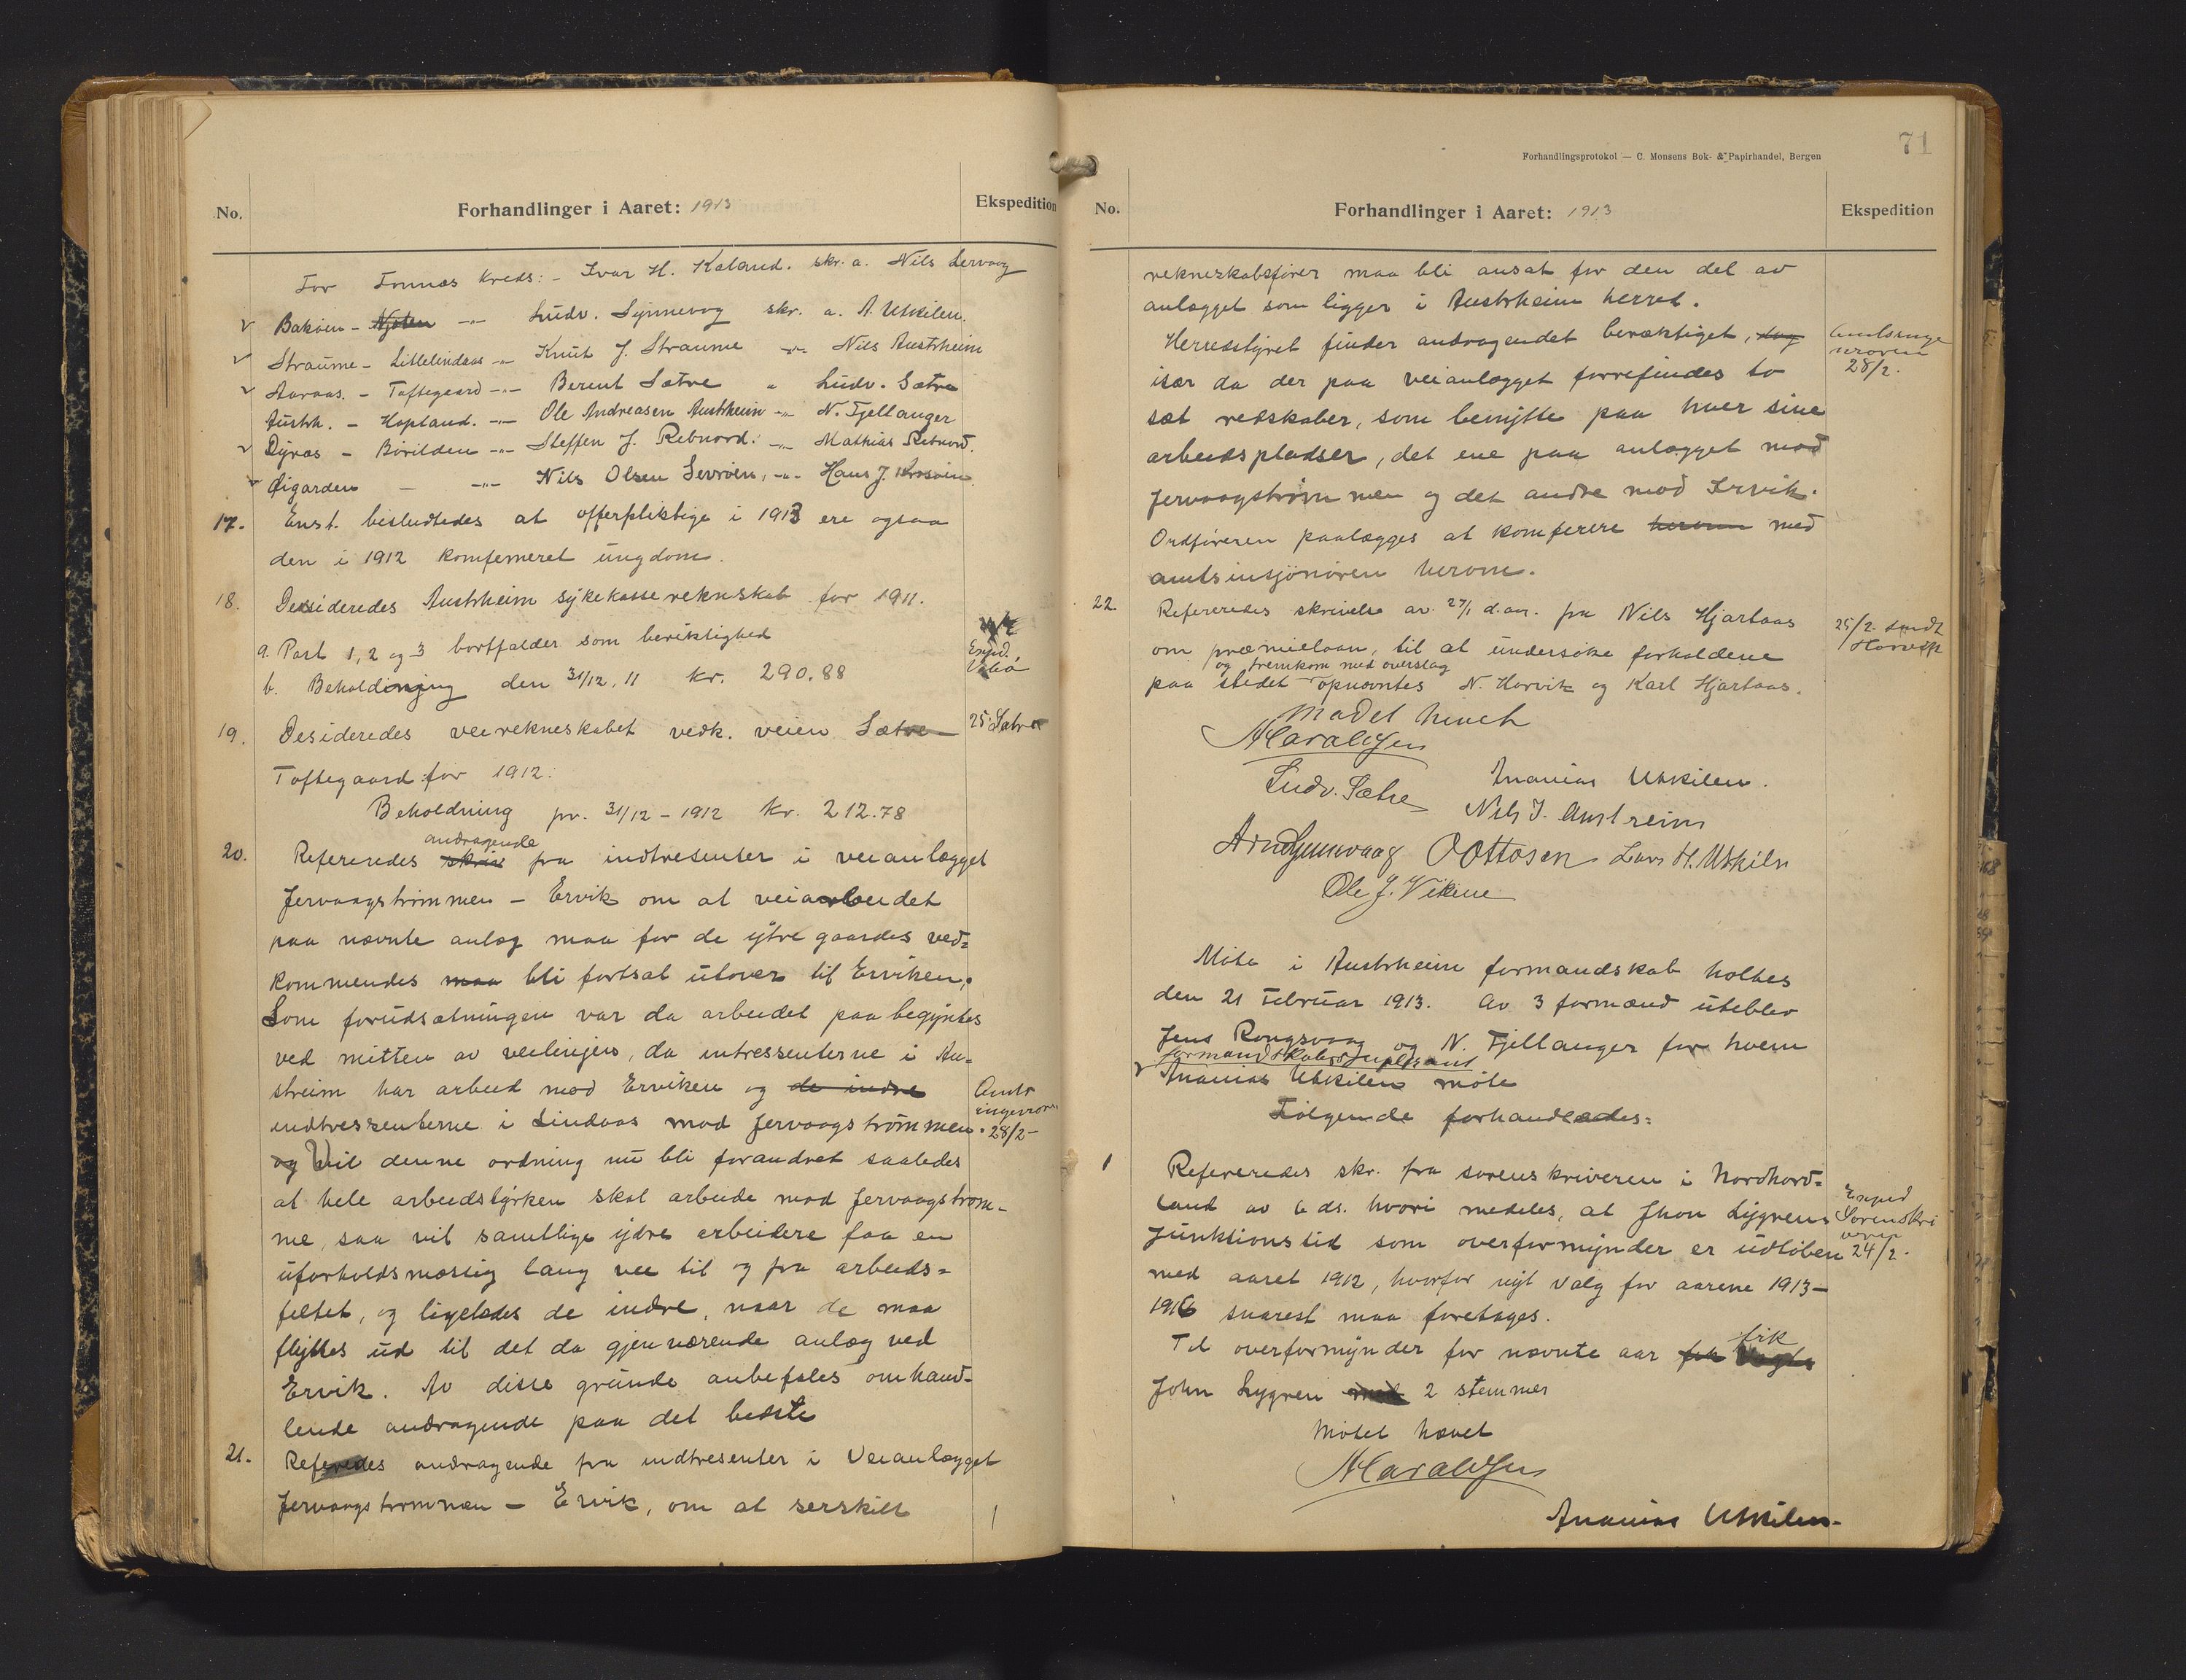 No.
Forhandlinger i Aaret: 1913
Ekspedition
For Fonnæs kreds: - Ivar H. Kaland. skr. a. Nils Lervaag
v Bakøen - Njøten -"- Ludv. Synnevog skr. a. A. Utkilen.
v Straume - Littlelindaas -"- Knut J. Straume -"- Nils Austrheim
v Aaraas. - Toftegaard -"- Berent Sætre " Ludv. Sætre
Austrh. - Hopland. -"- Ole Andreasen Austrheim -"- N. Fjellanger
v Dyræs - Børilden -"- Steffen J. Rebnord. -"- Mathias Rebnord.
v Øigarden - -"- Nils Olsen Sævrøen, -"- Hans J. Krossøen
17. Enst. besludtedes at offerpliktige i 1913 ere ogsaa
den i 1912 komfermeret ungdom.
18. Desideredes Austrheim sykekasserekneskab for 1911.
a. Post 1, 2 og 3 bortfalder som beriktighed
b. Beholdning den 31/12. 11 kr. 290.88
Exped.
19. Desideredes veirekneskabet vedk. veien Sætre
25. Sætre
Toftegaard for 1912:
Beholdning pr. 31/12 - 1912 kr. 212.78
andragende
20. Refereredes skriv fra indtresenter i veianlægget
Jervaagstrømmen - Ervik om at veiarbeidet
paa nævnte anlæg maa for de ytre gaardes ved=
kommendes maa bli fortsat utover til Erviken.
Som forudsætningen var da arbeidet paa begyntes
ved mitten av veilinjen, da intressenterne i Au=
streim har arbeid mod Erviken og de indre
indtressenterne i Lindaas mod Jervaagstrømmen.
Amts
ingeniøren
28/2 -
og Vil denne ordning nu bli forandret saaledes
at hele arbeidstyrken skal arbeide mod Jervaagstrøm=
me, saa vil samtlige ydre arbeidere faa en
uforholdsmæssig lang vei til og fra arbeids=
feltet, og ligeledes de indre, naar de maa
flyttes ud til det da gjenværende anlæg ved
Ervik. Av disse grunde anbefales omhand=
lende andragende paa det bedste
21. Referedes andragende fra indtresenter i Veianlægget
Jervaagstrømmen - Ervik, om at serskilt
71
Forhandlingsprotokol — C. Monsens Bok- & Papirhandel, Bergen
No.
Forhandlinger i Aaret: 1913
Ekspedition
rekneskabsfører maa bli ansat for den del av
anlægget som ligger i Austrheim herred.
Herredstyret finder andragendet berektiget, dog
især da der paa veianlægget forrefindes to
28/2.
sæt redskaber, som benytte paa hver sine
arbeidspladser, det ene paa anlægget mod
Jervaagstrømmen og det andre mod Ervik.
Ordføreren paalægges at komferere herom med
amtsinsjønøren herom.
22. Refereredes skrivelse av 27/1 d. aar. fra Nils Hjartaas
25/2. sendt
om præmielaan, til at undersøke forholdene
og fremkom med overslag
paa stedet opnævntes N. Horvik og Karl Hjartaas.
Mødet hævet
A Haraldsen
Ludv. Sætre Ananias Utkilen.
Nils J. Austreim
Arn Synnevaag O Ottosen Lars H. Utkilen
Ole J. Vikene
Møte i Austrheim formandskab holtes
den 21 Februar 1913. Av 3 formænd uteblev
Jens Rongevaag og N. Fjellanger for hvem
formandskabssuppleant
v Ananias Utkilen møte
Følgende forhandledes:
1 Refereredes skr. fra sorenskriveren i Nordhord=
land av 6 ds. hvori medeles, at Jhon Lygrens
Exped
Sorenskri
veren
24/2.
funktionstid som overformynder er udløben
med aaret 1912, hvorfor nyt valg for aarene 1913 -
1916 snarest maa foretages.
fik
Til overformynder for nævnte aar
John Lygren med 2 stemmer
Møtet hævet
A Haraldsen
Ananias Utkilen.